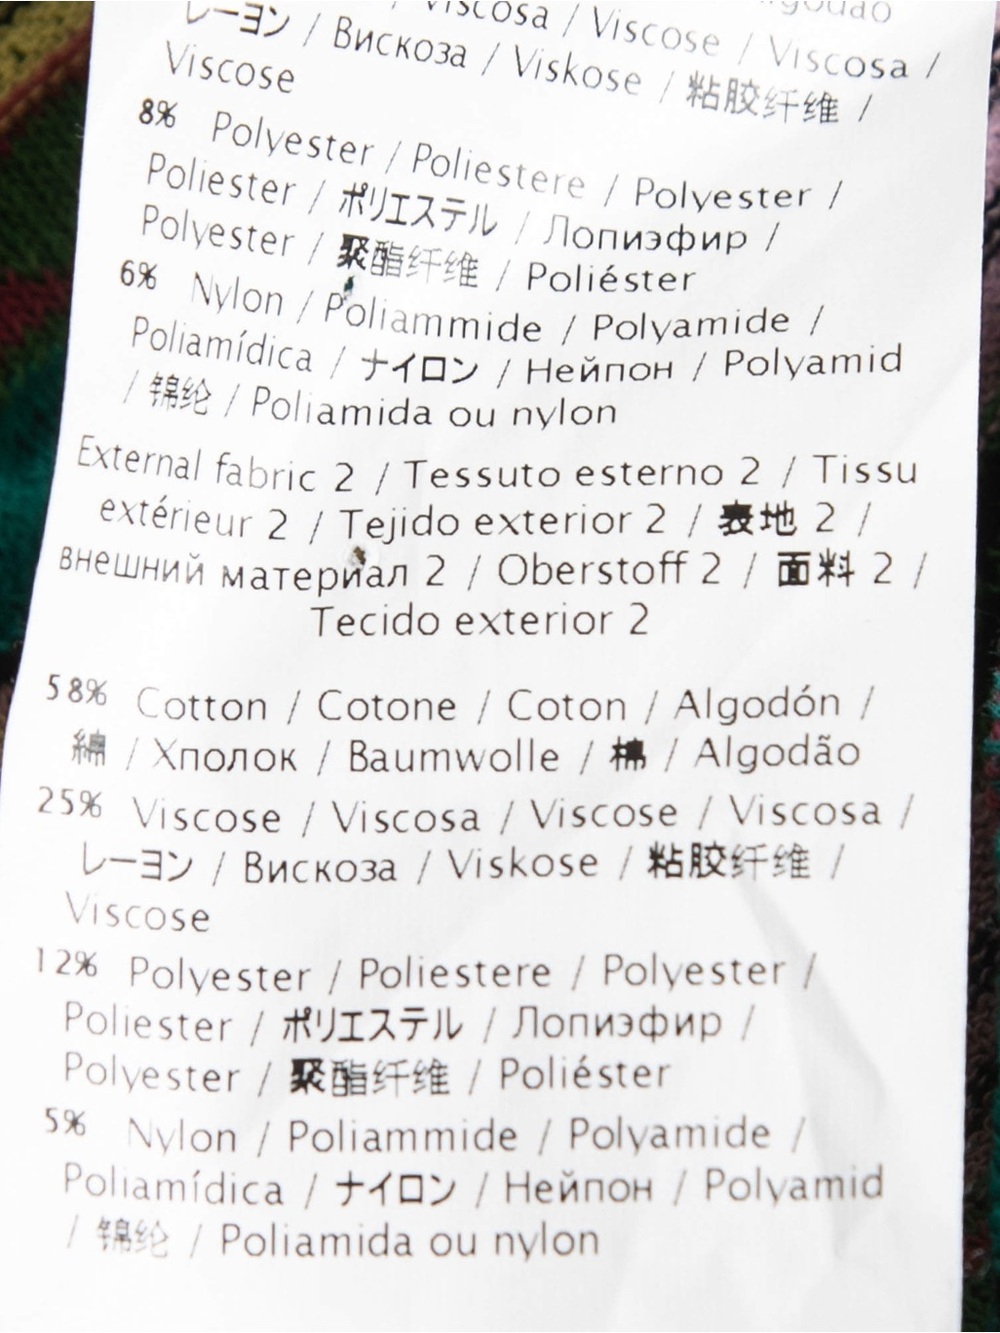 / Viscosa / Viscose / Viscosa /
レーヨン / Вискоза / Viskose / 粘胶纤维 /
Viscose
8% Polyester / Poliestere / Polyester /
Poliester / ポリエステル / Лопиэфир /
Polyester / 聚酯纤维 / Poliéster
6% Nylon / Poliammide / Polyamide /
Poliamídica / ナイロン / Нейпон / Polyamid
/ 锦纶 / Poliamida ou nylon
External fabric 2 / Tessuto esterno 2 / Tissu
extérieur 2 / Tejido exterior 2 / 表地 2 /
внешний материал 2 / Oberstoff 2 / 面料 2 /
Tecido exterior 2
58% Cotton / Cotone / Coton / Algodón /
綿 / Хполок / Baumwolle / 棉 / Algodão
25% Viscose / Viscosa / Viscose / Viscosa /
レーヨン / Вискоза / Viskose / 粘胶纤维 /
Viscose
12% Polyester / Poliestere / Polyester /
Poliester / ポリエステル / Лопиэфир /
Polyester / 聚酯纤维 / Poliéster
5% Nylon / Poliammide / Polyamide /
Poliamídica / ナイロン / Нейпон / Polyamid
/ 锦纶 / Poliamida ou nylon